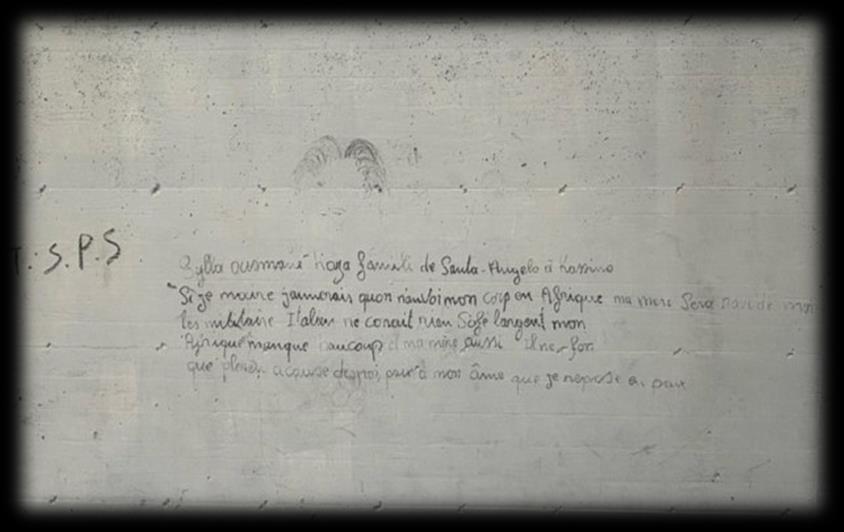 T. S.P.S
Sylla ousmane famili de Santa-Angelo à Kassino
"Si je moure jaimerais quon manvoi mon corp en Afrique ma mere Sera
les militaire Italien ne conait rien Sofe largent mon
Afrique manque baucoup et ma mère aussi Il ne for
que pleure acause de moi, à mon âme que je repose en paix